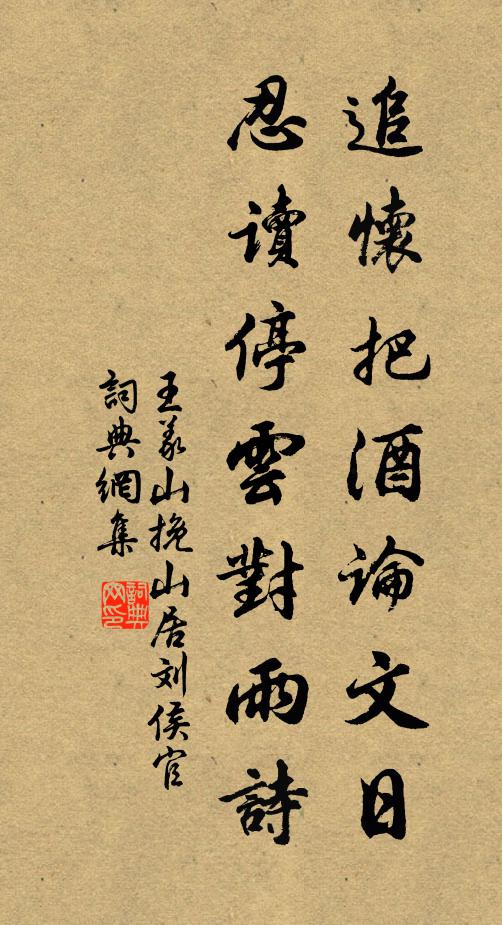 追懷把酒論文日
忍讀停雲對雨詩
王义山挽山居刘侯官
詞典網集
詞典
网印